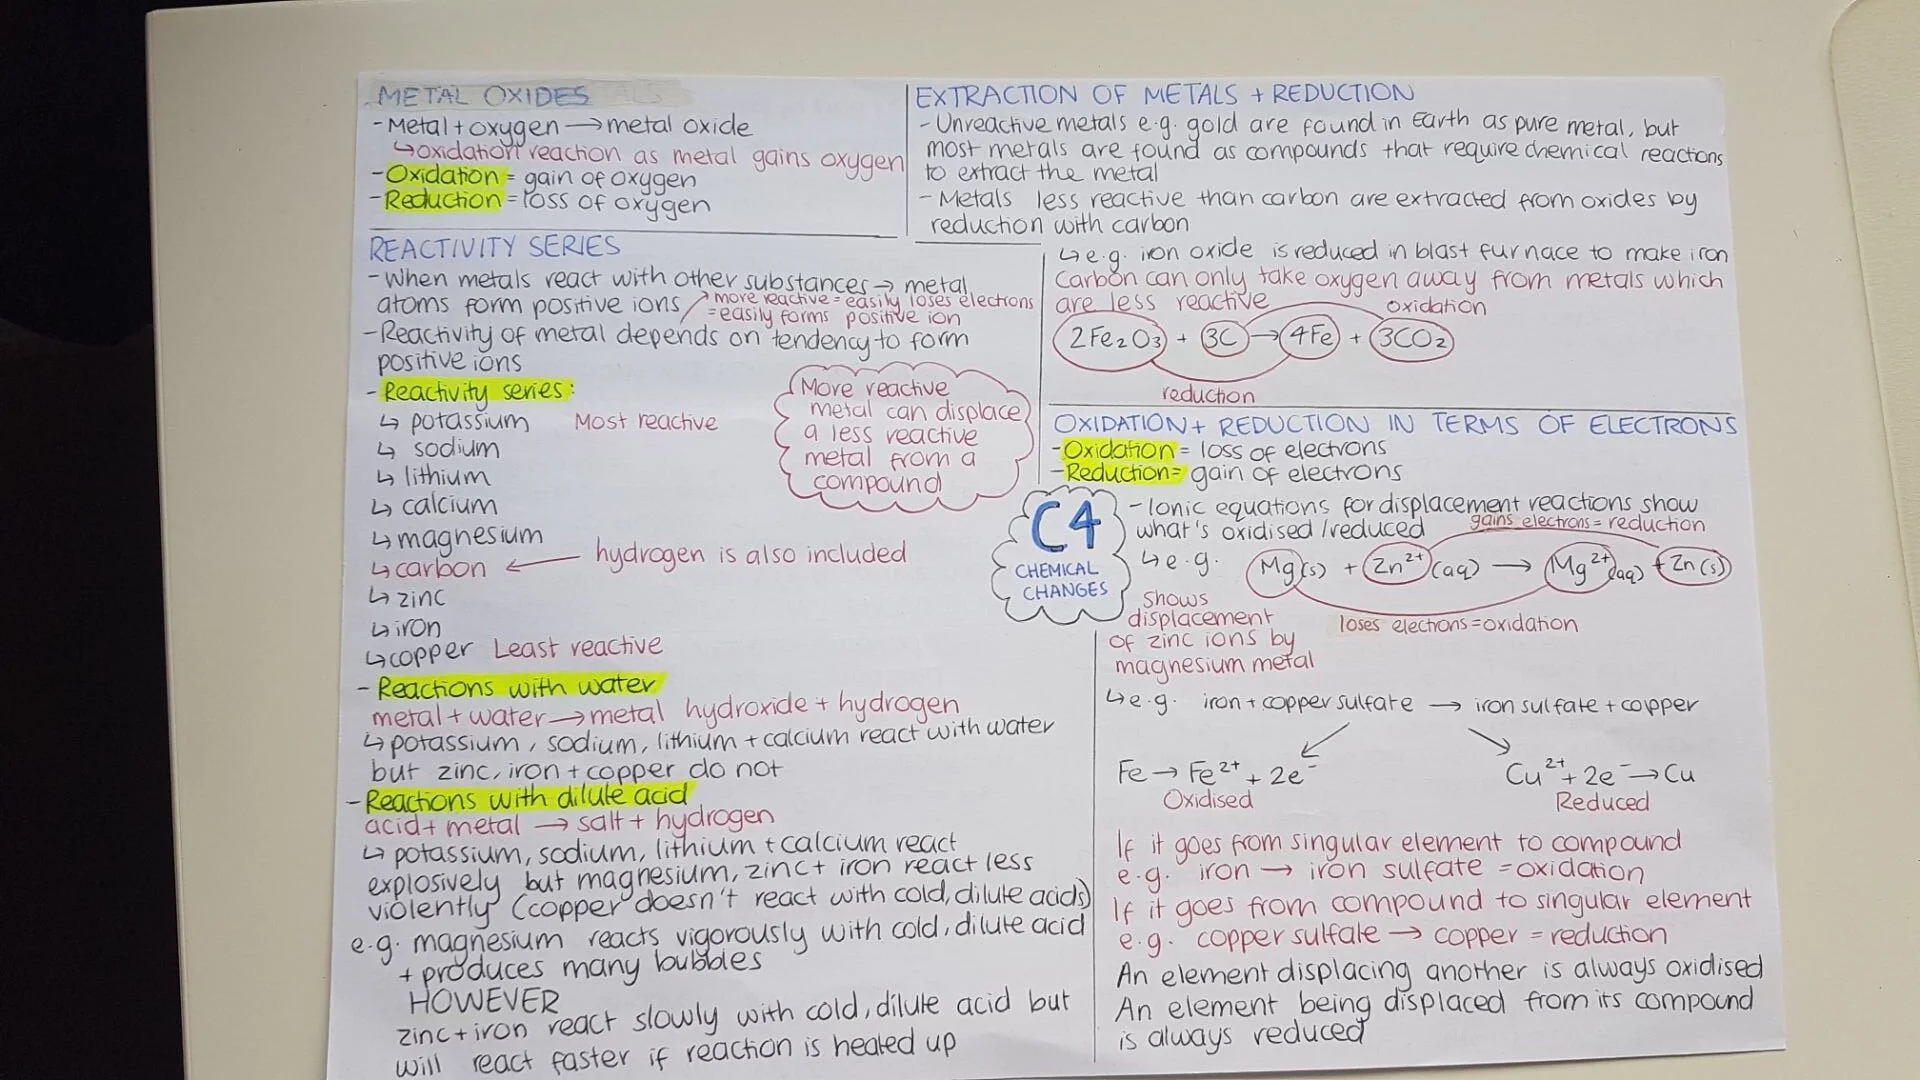 METAL OXIDES
- Metal + oxygen → metal oxide
↳ oxidation reaction as metal gains oxygen
- Oxidation = gain of oxygen
- Reduction = loss of oxygen
REACTIVITY SERIES
- When metals react with other substances → metal
atoms form positive ions
more reactive = easily loses electrons
= easily forms positive ion
- Reactivity of metal depends on tendency to form
positive ions
- Reactivity series:
↳ potassium Most reactive
↳ sodium
↳ lithium
↳ calcium
↳ magnesium
↳ carbon ← hydrogen is also included
↳ zinc
↳ iron
↳ copper Least reactive
More reactive
metal can displace
a less reactive
metal from a
compound
- Reactions with water
metal + water → metal hydroxide + hydrogen
↳ potassium, sodium, lithium + calcium react with water
but zinc, iron + copper do not
- Reactions with dilute acid
acid + metal → salt + hydrogen
↳ potassium, sodium, lithium + calcium react
explosively but magnesium, zinc + iron react less
violently (copper doesn't react with cold, dilute acids)
e.g. magnesium reacts vigorously with cold, dilute acid
+ produces many bubbles
HOWEVER
zinc + iron react slowly with cold, dilute acid but
will react faster if reaction is heated up
C4
CHEMICAL
CHANGES
EXTRACTION OF METALS + REDUCTION
- Unreactive metals e.g. gold are found in Earth as pure metal, but
most metals are found as compounds that require chemical reactions
to extract the metal
- Metals less reactive than carbon are extracted from oxides by
reduction with carbon
↳ e.g. iron oxide is reduced in blast furnace to make iron
Carbon can only take oxygen away from metals which
are less reactive
oxidation
2Fe₂O₃ + 3C → 4Fe + 3CO₂
reduction
OXIDATION + REDUCTION IN TERMS OF ELECTRONS
- Oxidation = loss of electrons
- Reduction = gain of electrons
- Ionic equations for displacement reactions show
what's oxidised/reduced
gains electrons = reduction
↳ e.g. Mg(s) + Zn²⁺(aq) → Mg²⁺(aq) + Zn(s)
loses electrons = oxidation
Shows
displacement
of zinc ions by
magnesium metal
↳ e.g. iron + copper sulfate → iron sulfate + copper
Fe → Fe²⁺ + 2e⁻
Oxidised
Cu²⁺ + 2e⁻ → Cu
Reduced
If it goes from singular element to compound
e.g. iron → iron sulfate = oxidation
If it goes from compound to singular element
e.g. copper sulfate → copper = reduction
An element displacing another is always oxidised
An element being displaced from its compound
is always reduced